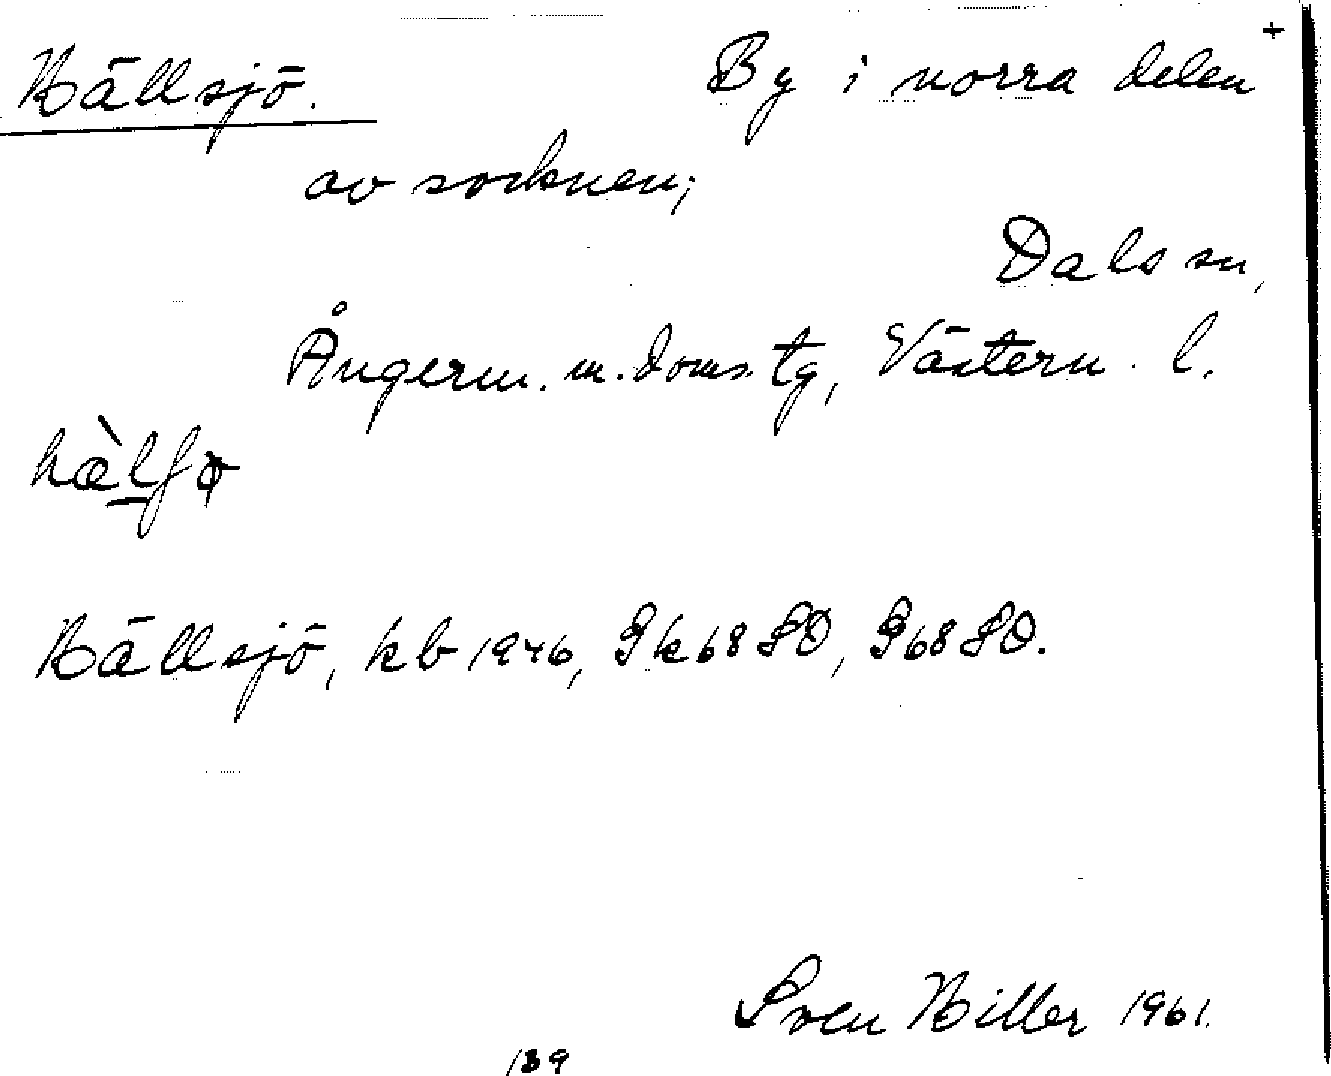 Hällsjö. By i norra delen +
av socknen;
Dals sn,
Ångerm. m. doms. tg, Västern. l.
Hällsjö, kb 1946, Gk 68 SO, G 68 SO.
Sven Hiller 1961.
139